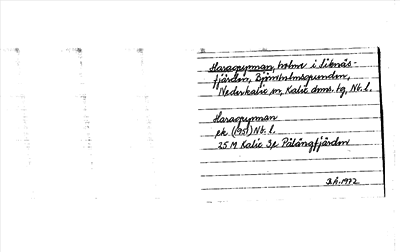 Haraogrynnan, holme i Siknäs-
fjärden, Björnholmsgrunden,
Nederkalix sn, Kalix doms. tg, Nb. l.
Haraogrynnan
ek. (1951) Nb. l.
25 M Kalix Sv Påläng fjärden
1972